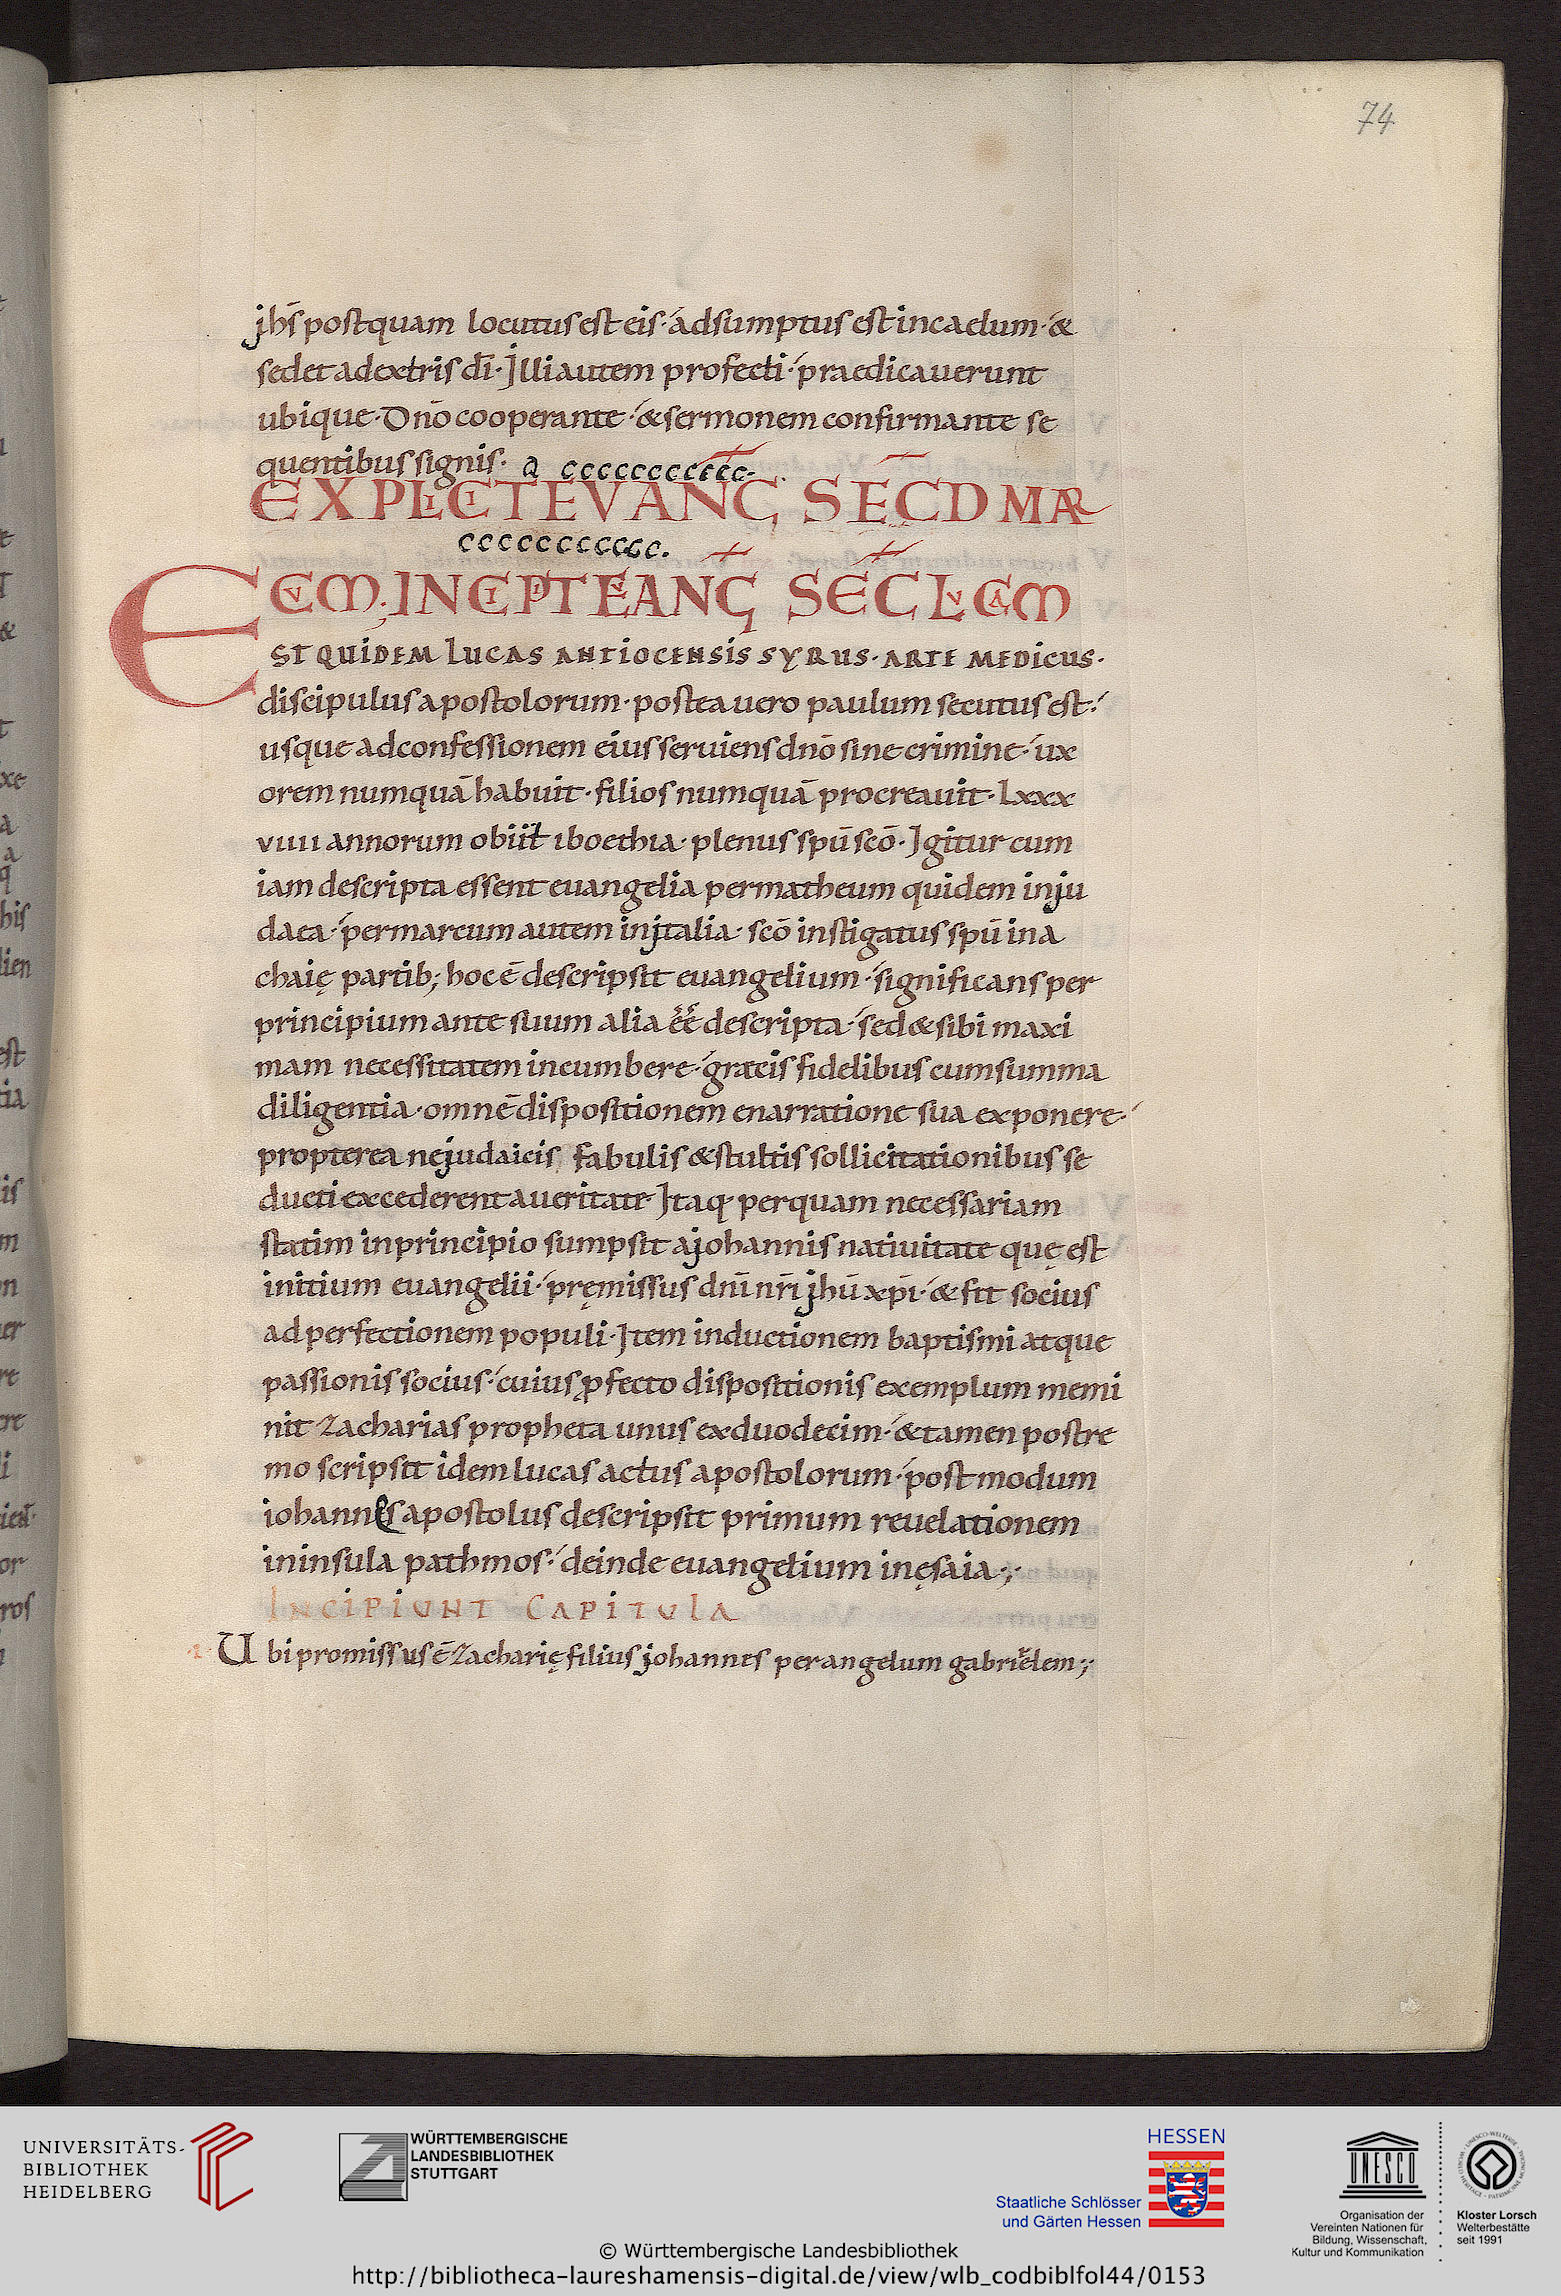 74
jhs̄ postquam locutus est eis· adsumptus est in caelum· &
sedet adextris dī· Jlli autem profecti· praedicauerunt
ubique· Dnō cooperante· & sermonem confirmante se
quentibus signis· a ccccccccccc·
EXPLICIT EVANG SECD MAR
ccccccccccc.
CVM· INCIPIT EVANG SEC LVCAM
EST QUIDEM LUCAS ANTIOCENSIS SYRUS· ARTE MEDICUS·
discipulus apostolorum· postea uero paulum secutus est·
usque ad confessionem eius seruiens dnō sine crimine· ux
orem numquā habuit· filios numquā procreauit· Lxxx
viiii annorum obiit iboethia· plenus spū scō· Jgitur cum
iam descripta essent euangelia per matheum quidem in ju
daea· per marcum autem in jtalia· scō instigatus spū in a
chaię partib; hoc ē descripsit euangelium· significans per
principium ante suum alia ēē descripta· sed & sibi maxi
mam necessitatem incumbere· grecis fidelibus cum summa
diligentia· omnē dispositionem enarratione sua exponere·
propterea ne judaicis fabulis & stultis sollicitationibus se
ducti excederent a ueritate Jtaq; perquam necessariam
statim in principio sumpsit a johannis natiuitate quę est
initium euangelii· pręmissus dnī nrī jhū xpī· & sit socius
ad perfectionem populi· Jtem inductionem baptismi atque
passionis socius· cuius ꝓfecto dispositionis exemplum memi
nit zacharias propheta unus ex duodecim· & tamen postre
mo scripsit idem lucas actus apostolorum· post modum
iohannes apostolus descripsit primum reuelationem
in insula pathmos· deinde euangelium in ęsaia·;·
INCIPIUNT CAPITULA
·I· Ubi promissus ē zacharię filius johannes per angelum gabrielem·;·
UNIVERSITÄTS-
BIBLIOTHEK
HEIDELBERG
WÜRTTEMBERGISCHE
LANDESBIBLIOTHEK
STUTTGART
HESSEN
Staatliche Schlösser
und Gärten Hessen
UNESCO
Organisation der
Vereinten Nationen für
Bildung, Wissenschaft,
Kultur und Kommunikation
Kloster Lorsch
Welterbestätte
seit 1991
© Württembergische Landesbibliothek
http://bibliotheca-laureshamensis-digital.de/view/wlb_codbiblfol44/0153